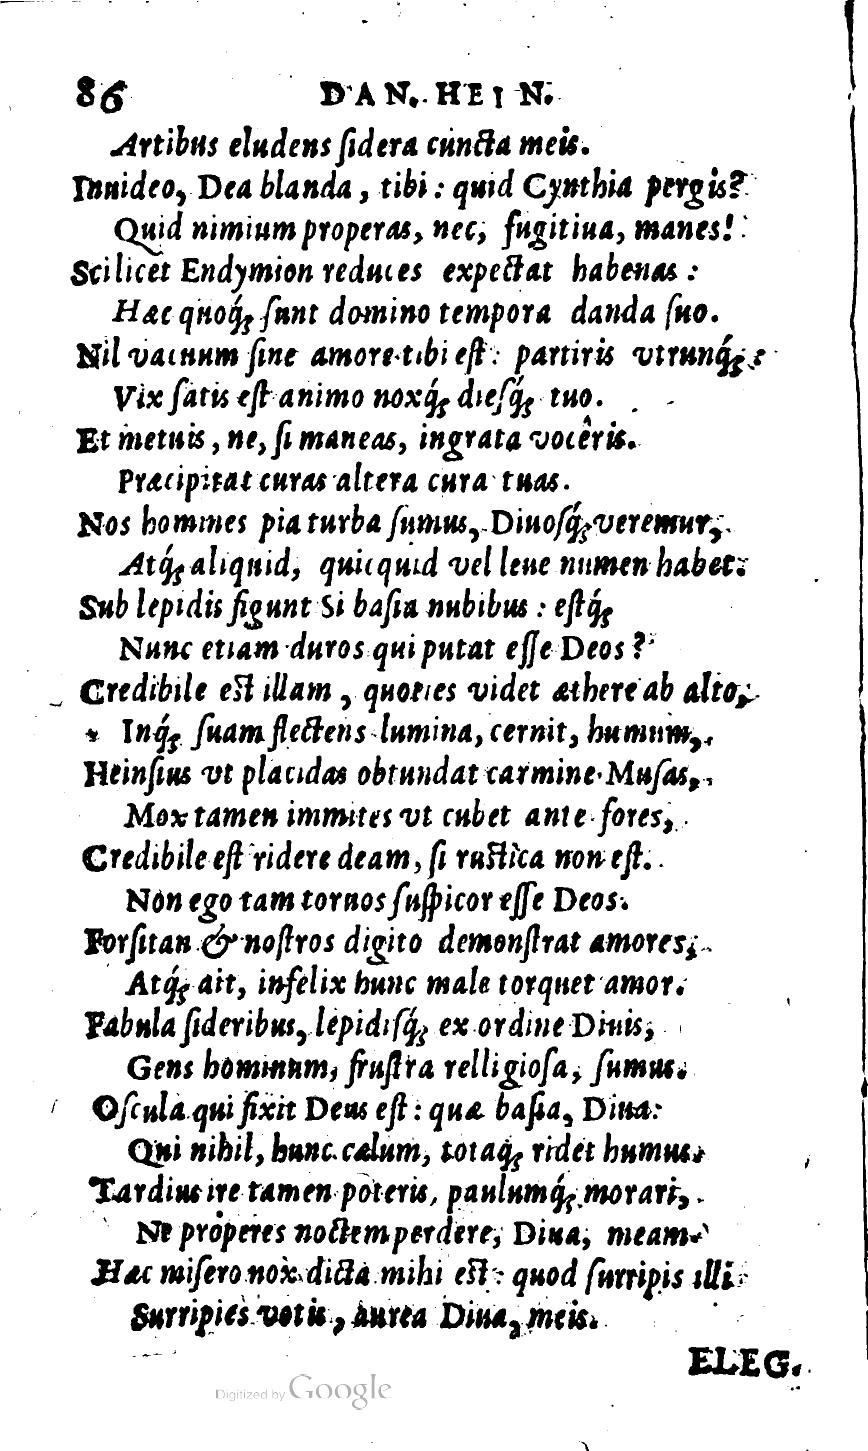 86 DAN. HEIN.
Artibus eludens ſidera cuncta meis.
Innideo, Dea blanda, tibi: quid Cynthia pergis?
Quid nimium properas, nec, fugitiua, manes!
Scilicet Endymion reduces expectat habenas:
Hæc quoq́ꝫ ſunt domino tempora danda ſuo.
Nil vacuum ſine amore tibi eſt: partiris vtrunq́ꝫ:
Vix ſatis eſt animo noxq́ꝫ dieſq́ꝫ tuo.
Et metuis, ne, ſi maneas, ingrata vocêris.
Præcipitat curas altera cura tuas.
Nos homines pia turba ſumus, Diuoſq́ꝫ veremur,
Atq́ꝫ aliquid, quicquid vel leue numen habet.
Sub lepidis figunt Si baſia nubibus: eſtq́ꝫ
Nunc etiam duros qui putat eſſe Deos?
Credibile est illam, quoties videt æthere ab alto,
Inq́ꝫ ſuam flectens lumina, cernit, humum,
Heinſius vt placidas obtundat carmine Muſas,
Mox tamen immites vt cubet ante fores,
Credibile eſt ridere deam, ſi rustica non eſt.
Non ego tam toruos ſuſpicor eſſe Deos.
Forſitan & noſtros digito demonſtrat amores,
Atq́ꝫ ait, infelix hunc male torquet amor.
Fabula ſideribus, lepidiſq́ꝫ ex ordine Diuis,
Gens hominum, fruſtra relligioſa, ſumus.
Oſcula qui fixit Deus eſt: quæ baſia, Diua:
Qui nihil, hunc cælum, totaq́ꝫ ridet humus.
Tardius ire tamen poteris, paulumq́ꝫ morari,
Ne properes noctem perdere, Diua, meam.
Hæc miſero nox dicta mihi est: quod ſurripis illi
Surripies votis, aurea Diua, meis.
ELEG.
Digitized by Google